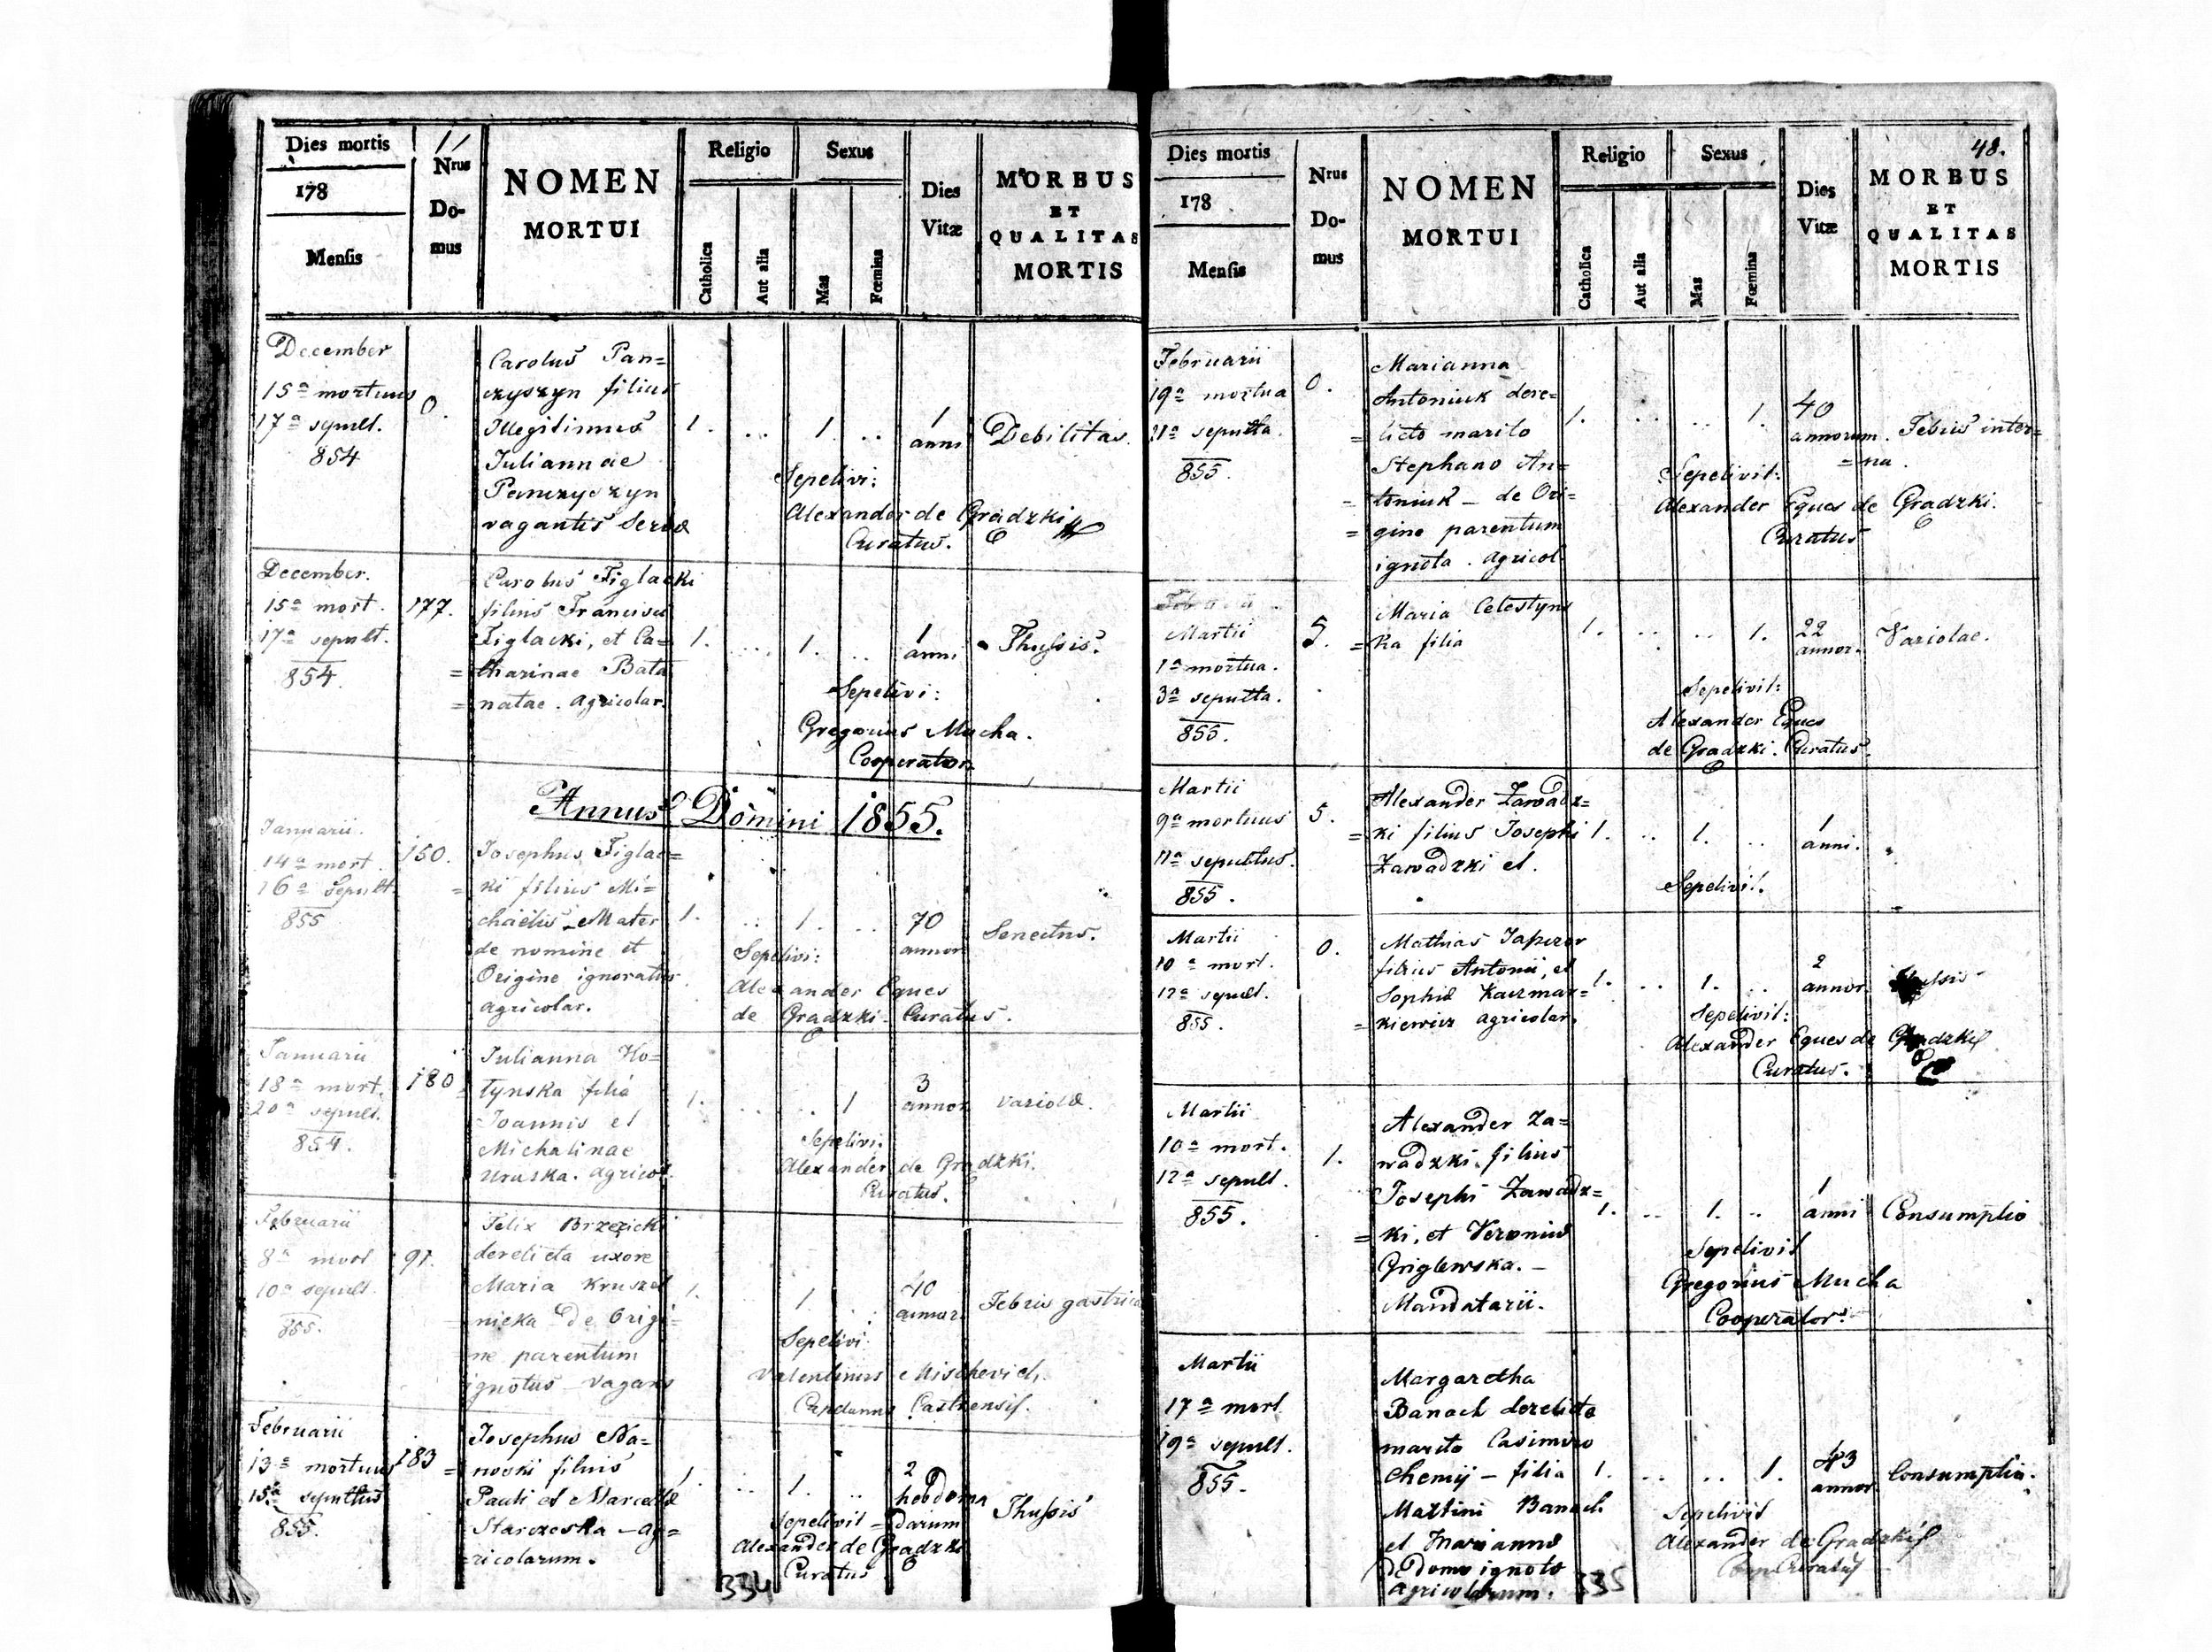 Dies mortis
178
Mensis
11
Nrus
Do-
mus
NOMEN
MORTUI
Religio
Catholica
Aut alia
Sexus
Mas
Fœmina
Dies
Vitæ
MORBUS
ET
QUALITAS
MORTIS
December
15a mortuus
17a sepult.
854
0.
Carolus Pan=
czyszyn filius
Illegitimus
Juliannae
Panczyszyn
vagantis Servæ
1. .. 1. ..
1
anni
Debilitas.
Sepelivi:
Alexander de Gradzki
Curatus.
December.
15a mort.
17a sepult.
854.
177.
Carolus Figlacki
filius Francisci
Figlacki, et Ca=
=tharinae Bata
=natae. agricolar.
1. .. 1. ..
1
anni
Thussis.
Sepelivi:
Gregorius Mucha.
Cooperator.
Annus Domini 1855.
Januarii.
14a mort.
16a Sepult.
855
150.
Josephus Figlac=
=ki filius Mi=
chaelis - Mater
de nomine et
Origine ignoratus
agricolar.
1. .. 1. ..
70
annor
Senectus.
Sepelivi:
Alexander Eques
de Gradzki. Curatus.
Januarii
18a mort.
20a sepult.
854.
180
Julianna Ho=
tynska filia
Joannis et
Michalinae
Uruska. agricol.
1. .. .. 1
3
annor
variolæ.
Sepelivi:
Alexander de Gradzki.
Curatus.
Februarii
8a mort
10a sepult.
855.
97.
Felix Brzezicki
derelicta uxore
Maria Kruszel
nicka De Origi=
=ne parentum
ignotus - vagans
1. 1. ..
40
annor.
Febris gastrica
Sepelivi:
Valentinus
Castrensis.
Februarii
13a mortuus
15a sepultus
855.
183
Josephus Na=
=nocki filius
Pauli et Marcellæ
Starzeska - ag=
=ricolarum.
1. .. 1. ..
2
hebdoma
=darum
Thussis
Sepelivit
Alexander de Gradzki
Curatus
334
Dies mortis
178
Mensis
Nrus
Do-
mus
NOMEN
MORTUI
Religio
Catholica
Aut alia
Sexus
Mas
Fœmina
Dies
Vitæ
48.
MORBUS
ET
QUALITAS
MORTIS
Februarii
19a mortua
21a sepulta.
855.
0.
Marianna
Antoniuk dere=
=licto marito
Stephano An=
=toniuk - de Ori=
=gine parentum
ignota. agricol
1. .. .. 1.
40
annorum.
Febris inter=
=na.
Sepelivit:
Alexander Eques de Gradzki.
Curatus
Martii
1a mortua.
3a sepulta.
855.
5.
Maria Celestyns
=ka filia
1. .. .. 1.
22
annor.
Variolae.
Sepelivit:
Alexander Eques
de Gradzki. Curatus.
Martii
9a mortuus
11a sepultus.
855.
5.
Alexander Zawadz=
=ki filius Josephi
Zawadzki et.
1. .. 1. ..
1
anni.
Sepelivit.
Martii
10a mort.
12a sepult.
855.
0.
Mathias
filius Antonii, et
Sophiæ Kaczmar=
=kiewicz agricolar.
1. .. 1. ..
2
annor.
Sepelivit:
Alexander Eques de Gradzki
Curatus.
Martii
10a mort.
12a sepult.
855.
1.
Alexander Za=
wadzki. filius
Josephi Zawadz=
=ki, et Veroniæ
Griglewska. -
Mandatarii.
1. .. 1. ..
1
anni
Consumptio
Sepelivit
Gregorius Mucha
Cooperator.
Martii
17a mort.
19a sepult.
855.
Margaretha
Banach derelicto
marito Casimiro
Chemij - filia
Martini Banach
et Marianna
de Domo ignoto
agricolarum.
1. .. .. 1.
43
annor
Consumptio.
Sepelivit
Alexander de Gradzki
335